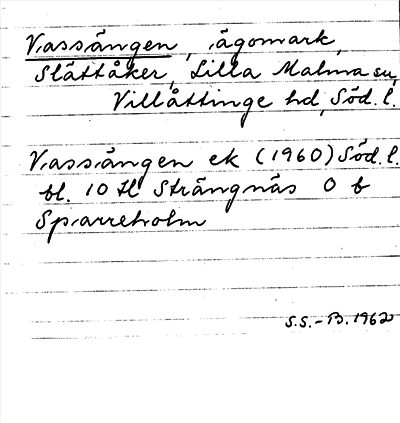 Vassängen, ägomark,
Slättåker, Lilla Malma sn,
Villåttinge hd, Söd. l.
Vassängen ek (1960) Söd. l.
bl. 10 H Strängnäs 0 b
Sparreholm
S.S.-B. 1962